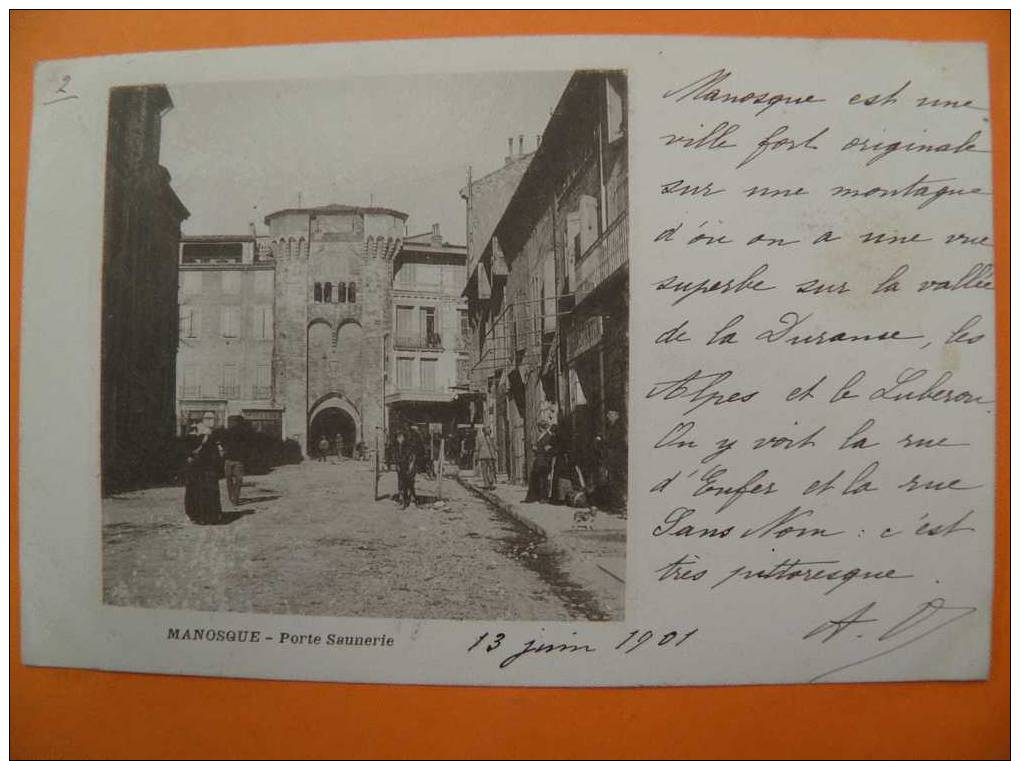 2
Manosque est une
ville fort originale
sur une montagne
d'où on a une vue
superbe sur la vallée
de la Duranse, les
Alpes et le Luberon.
On y voit la rue
d'Enfer et la rue
Sans Nom : c'est
très pittoresque.
A. D
MANOSQUE - Porte Saunerie
13 juin 1901